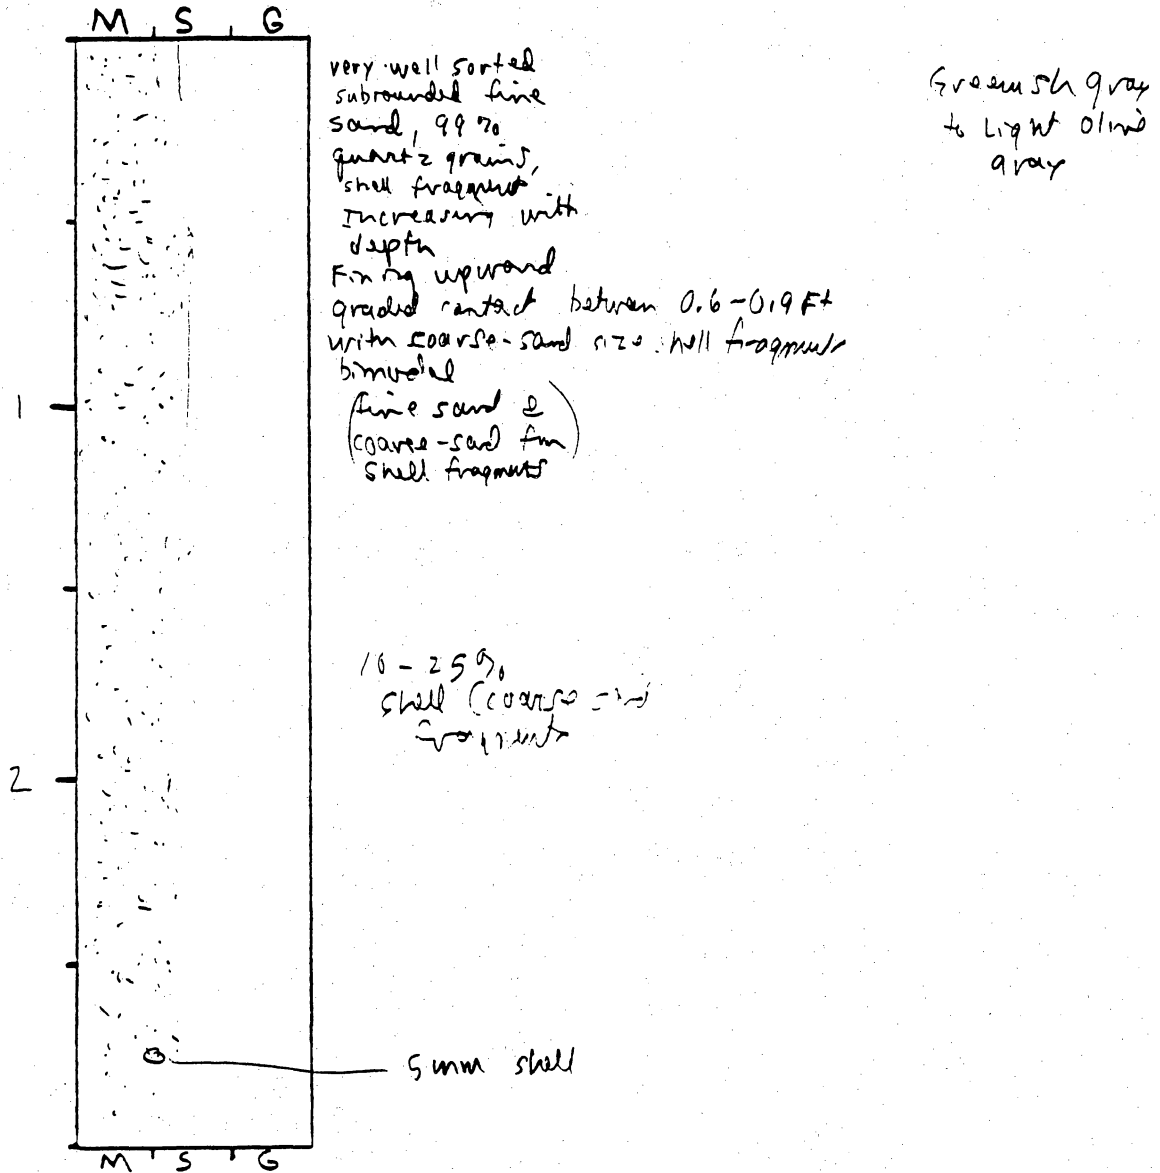 M S G
very well sorted
subrounded fine
sand, 99%
quartz grains,
shell fragment
Increasing with
depth
Fining upward
graded contact between 0.6-0.9 Ft
with coarse-sand size shell fragments
bimodal
(fine sand &
coarse-sand fm
shell fragments)
Greenish gray
to Light Olive
gray
1
10-25%
shell (coarse
fragments
2
5 mm shell
M S G